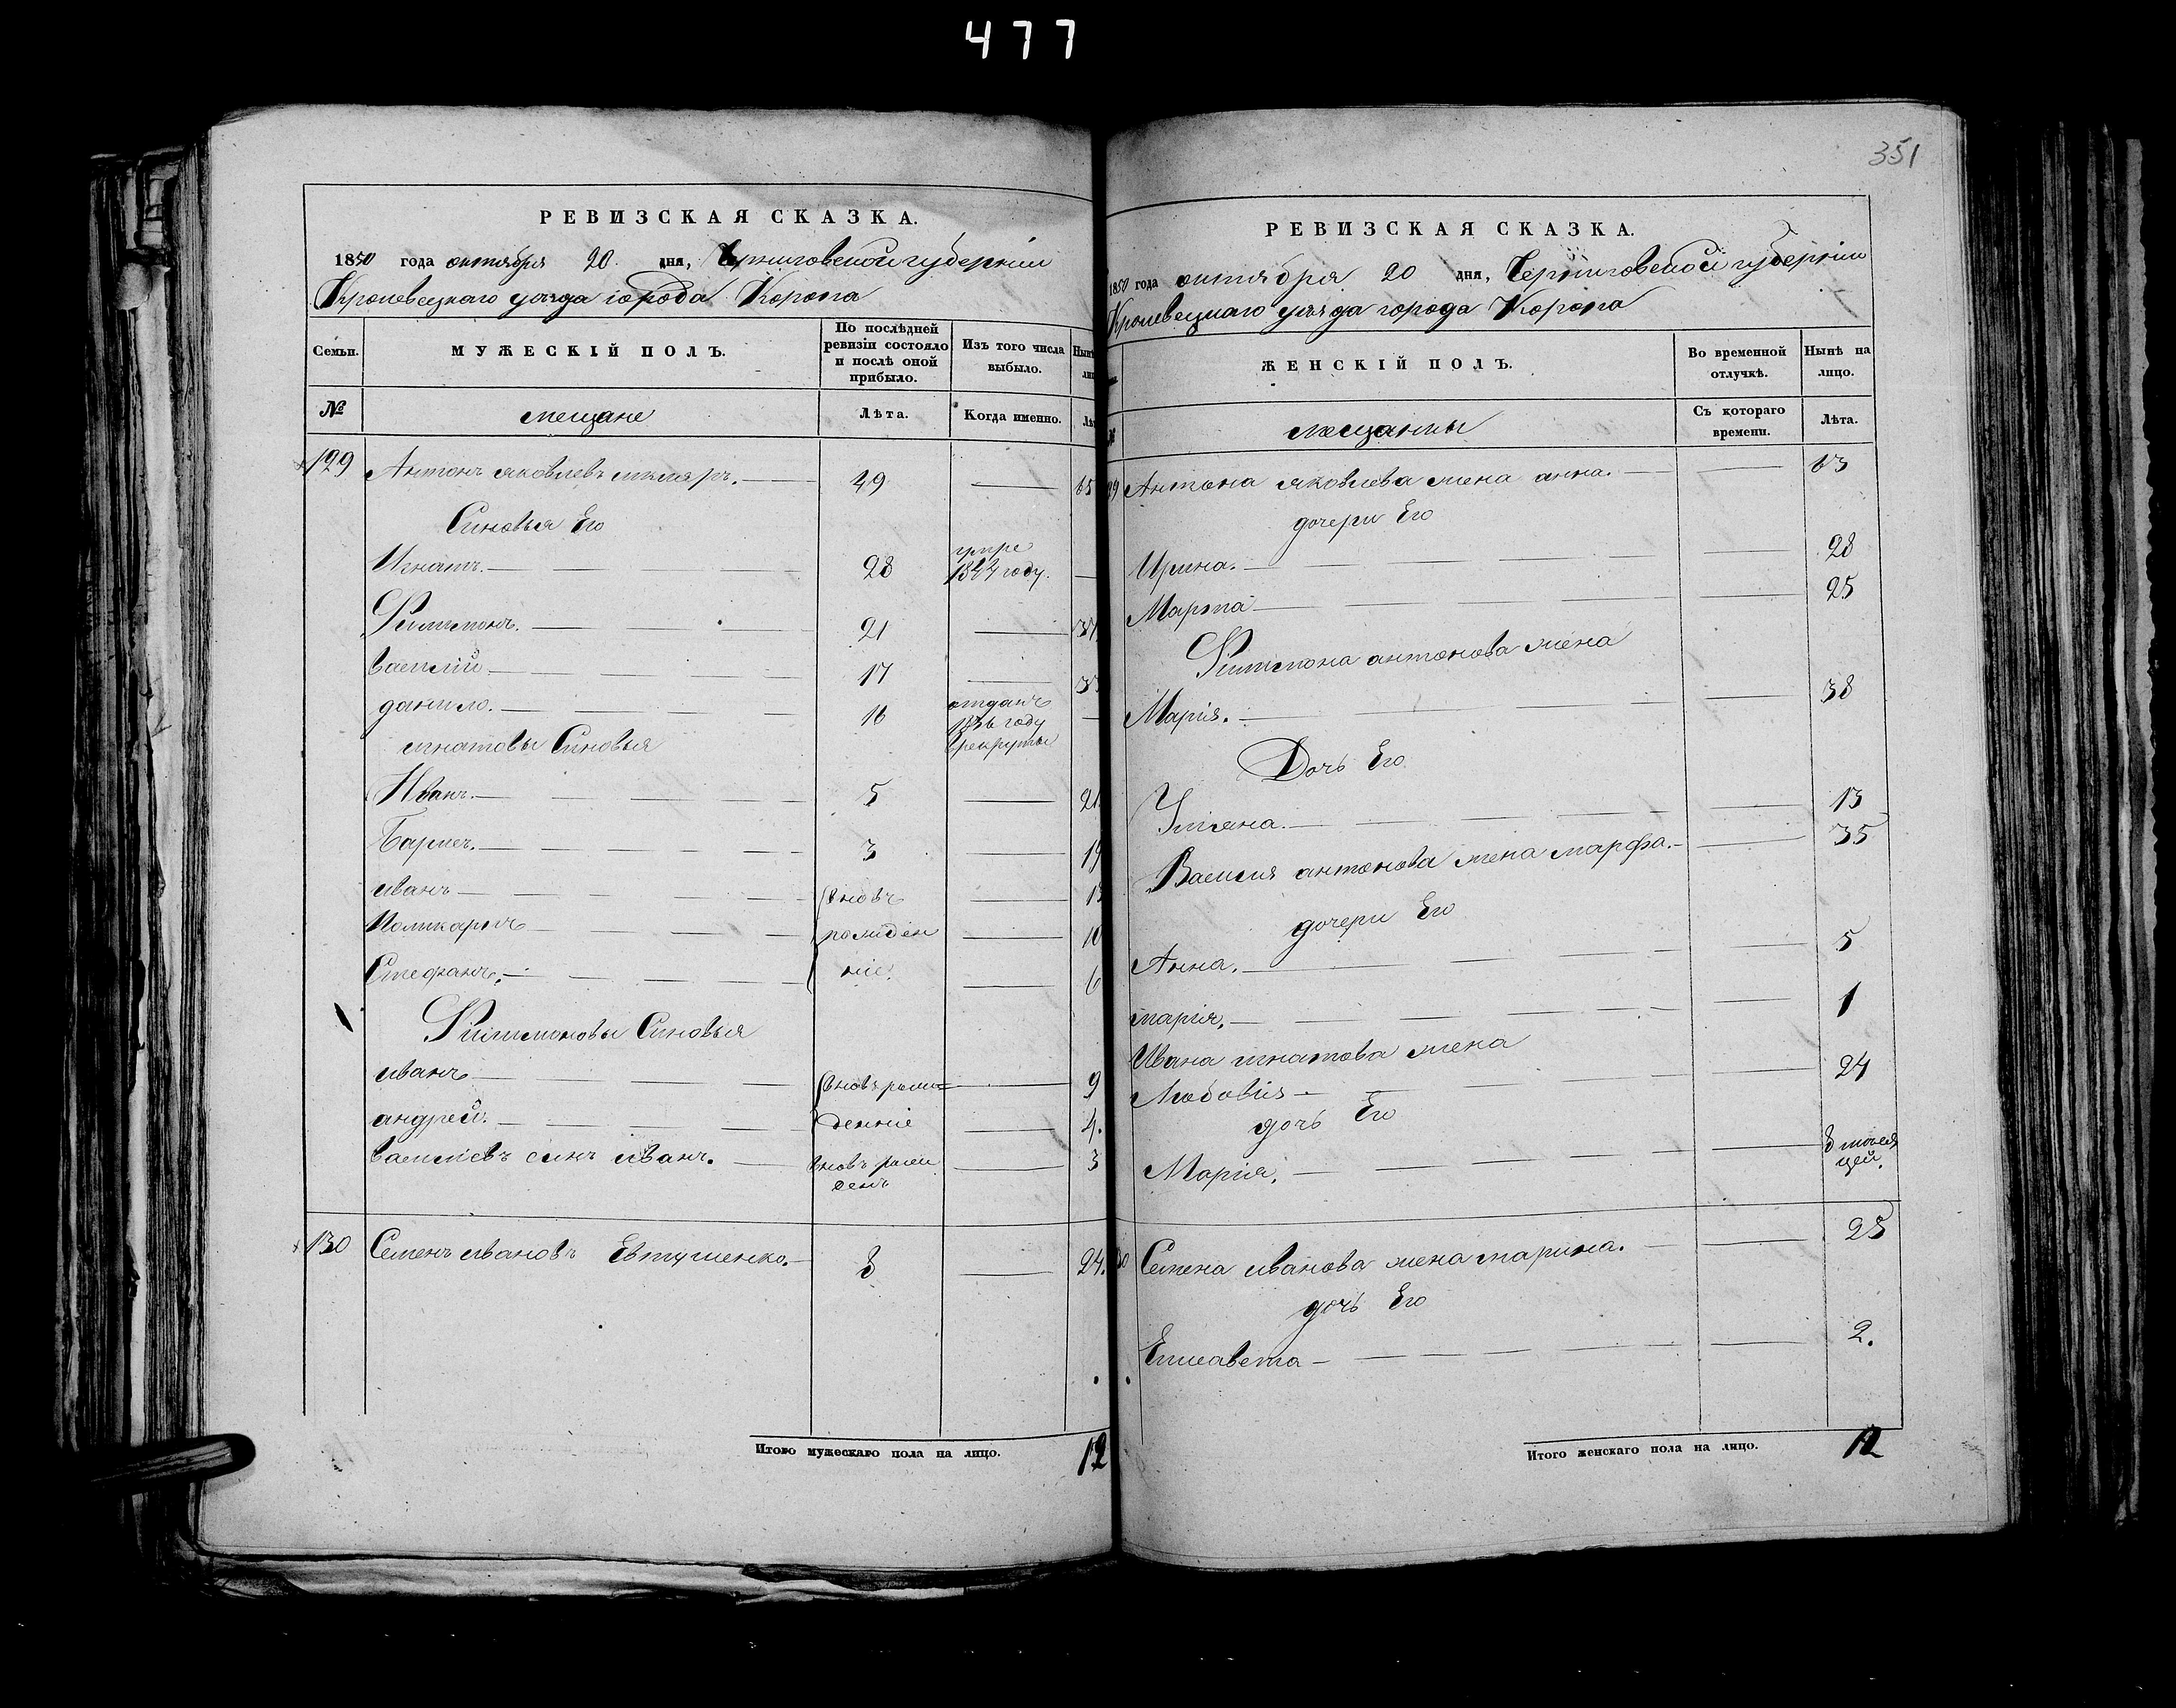 477
351
РЕВИЗСКАЯ СКАЗКА.
1850 года октября 20 дня, Черниговской губерніи
Кролевецкаго уѣзда города Коропа
Семьи.
МУЖЕСКІЙ ПОЛЪ.
По послѣдней ревизіи состояло и послѣ оной прибыло.
Изъ того числа выбыло.
Нынѣ
№
мещане
Лѣта.
Когда именно.
129 Антонъ яковлевъ 49 65
Синовья Его
Игнатъ. 28 умре 1844 году.
Филимонъ. 21 37
василій 17 33
данило. 16 отданъ 1836 году врекруты
игнатовы Синовья
Иванъ. 5 21
3 19
иванъ вновь 13
Поликарпъ рожден 10
Стефанъ. ніе. 6
Филимоновы Синовья
иванъ вновь рож= 9
андрей. деніе 4.
василіевъ синъ иванъ. вновь рож 3
денъ
130 Семенъ ивановъ Евтушенко. 8 24.
Итого мужескаго пола на лицо. 12
РЕВИЗСКАЯ СКАЗКА.
1850 года октября 20 дня, Черниговской губерніи
Кролевецкаго уѣзда города Коропа
ЖЕНСКІЙ ПОЛЪ.
Во временной отлучкѣ.
Нынѣ на лицо.
мещанки
Съ котораго времени.
Лѣта.
29 Антона яковлева жена анна. 63
дочери Его
Ирина. 28
Марта 25
Филимона антонова жена
Марія. 38
Дочь Его
Уліяна. 13
Василія антонова жена марфа. 35
дочери Его
Анна. 5
марія. 1
Ивана игнатова жена
Любовія 24
дочь Его
Марія. 8 месяцей.
30 Семена иванова жена марина. 23
дочь Его
Елисавета 2.
Итого женскаго пола на лицо. 12